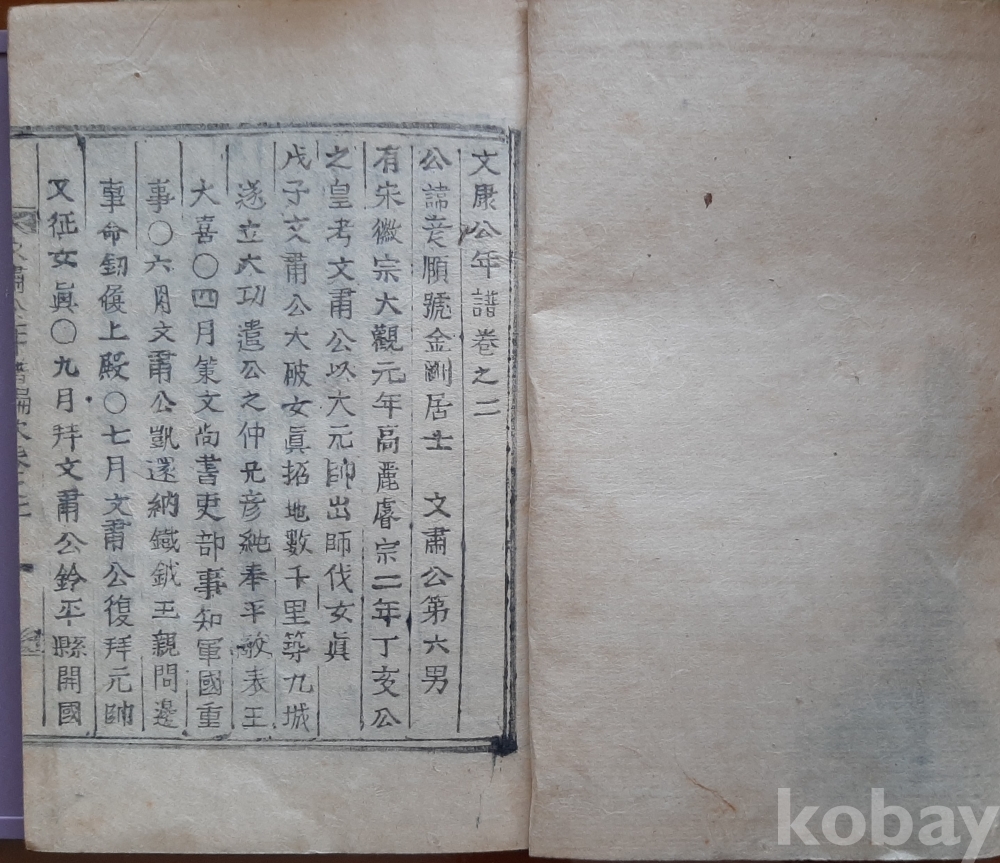 文康公年譜卷之二
公諱彦頥號金剛居士　文肅公第六男
有宋徽宗大觀元年高麗睿宗二年丁亥公
之皇考文肅公以大元帥出師伐女眞
戊子文肅公大破女眞拓地數千里築九城
遂立大功遣公之仲兄彦純奉平敵表王
大喜○四月策文尚書吏部事知軍國重
事○六月文肅公凱還納鐵鉞王親問邊
事命釰復上殿○七月文肅公復拜元帥
又征女眞○九月拜文肅公鈴平縣開國
文肅公年譜編次卷之
kobay